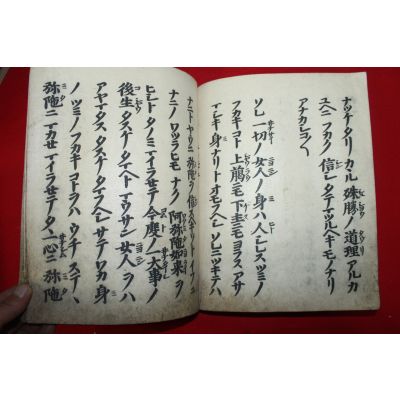 ナツケタリカヽル殊勝ノ道理アルカ
ユヘニフカク信シタテマツルヘキモノナリ
アナカシコ〳〵
ソレ一切ノ女人ノ身ハ人シレスツミノ
フカキコト上臈ニモ下主ニモヨラヌアサ
マシキ身ナリトオモフヘシソレニツキテハ
ナニトヤウニ弥陀ヲ信スヘキソトイフニ
ナニノワツラヒモナク阿弥陀如来ヲ
ヒシトタノミマイラセテ今度ノ一大事ノ
後生タスケタマヘトマウサン女人ヲハ
アヤマタスタスケタマフヘシサテワカ身
ノツミノフカキコトヲハウチステヽ
弥陀ニマカセマイラセテタヽ一心ニ弥陀